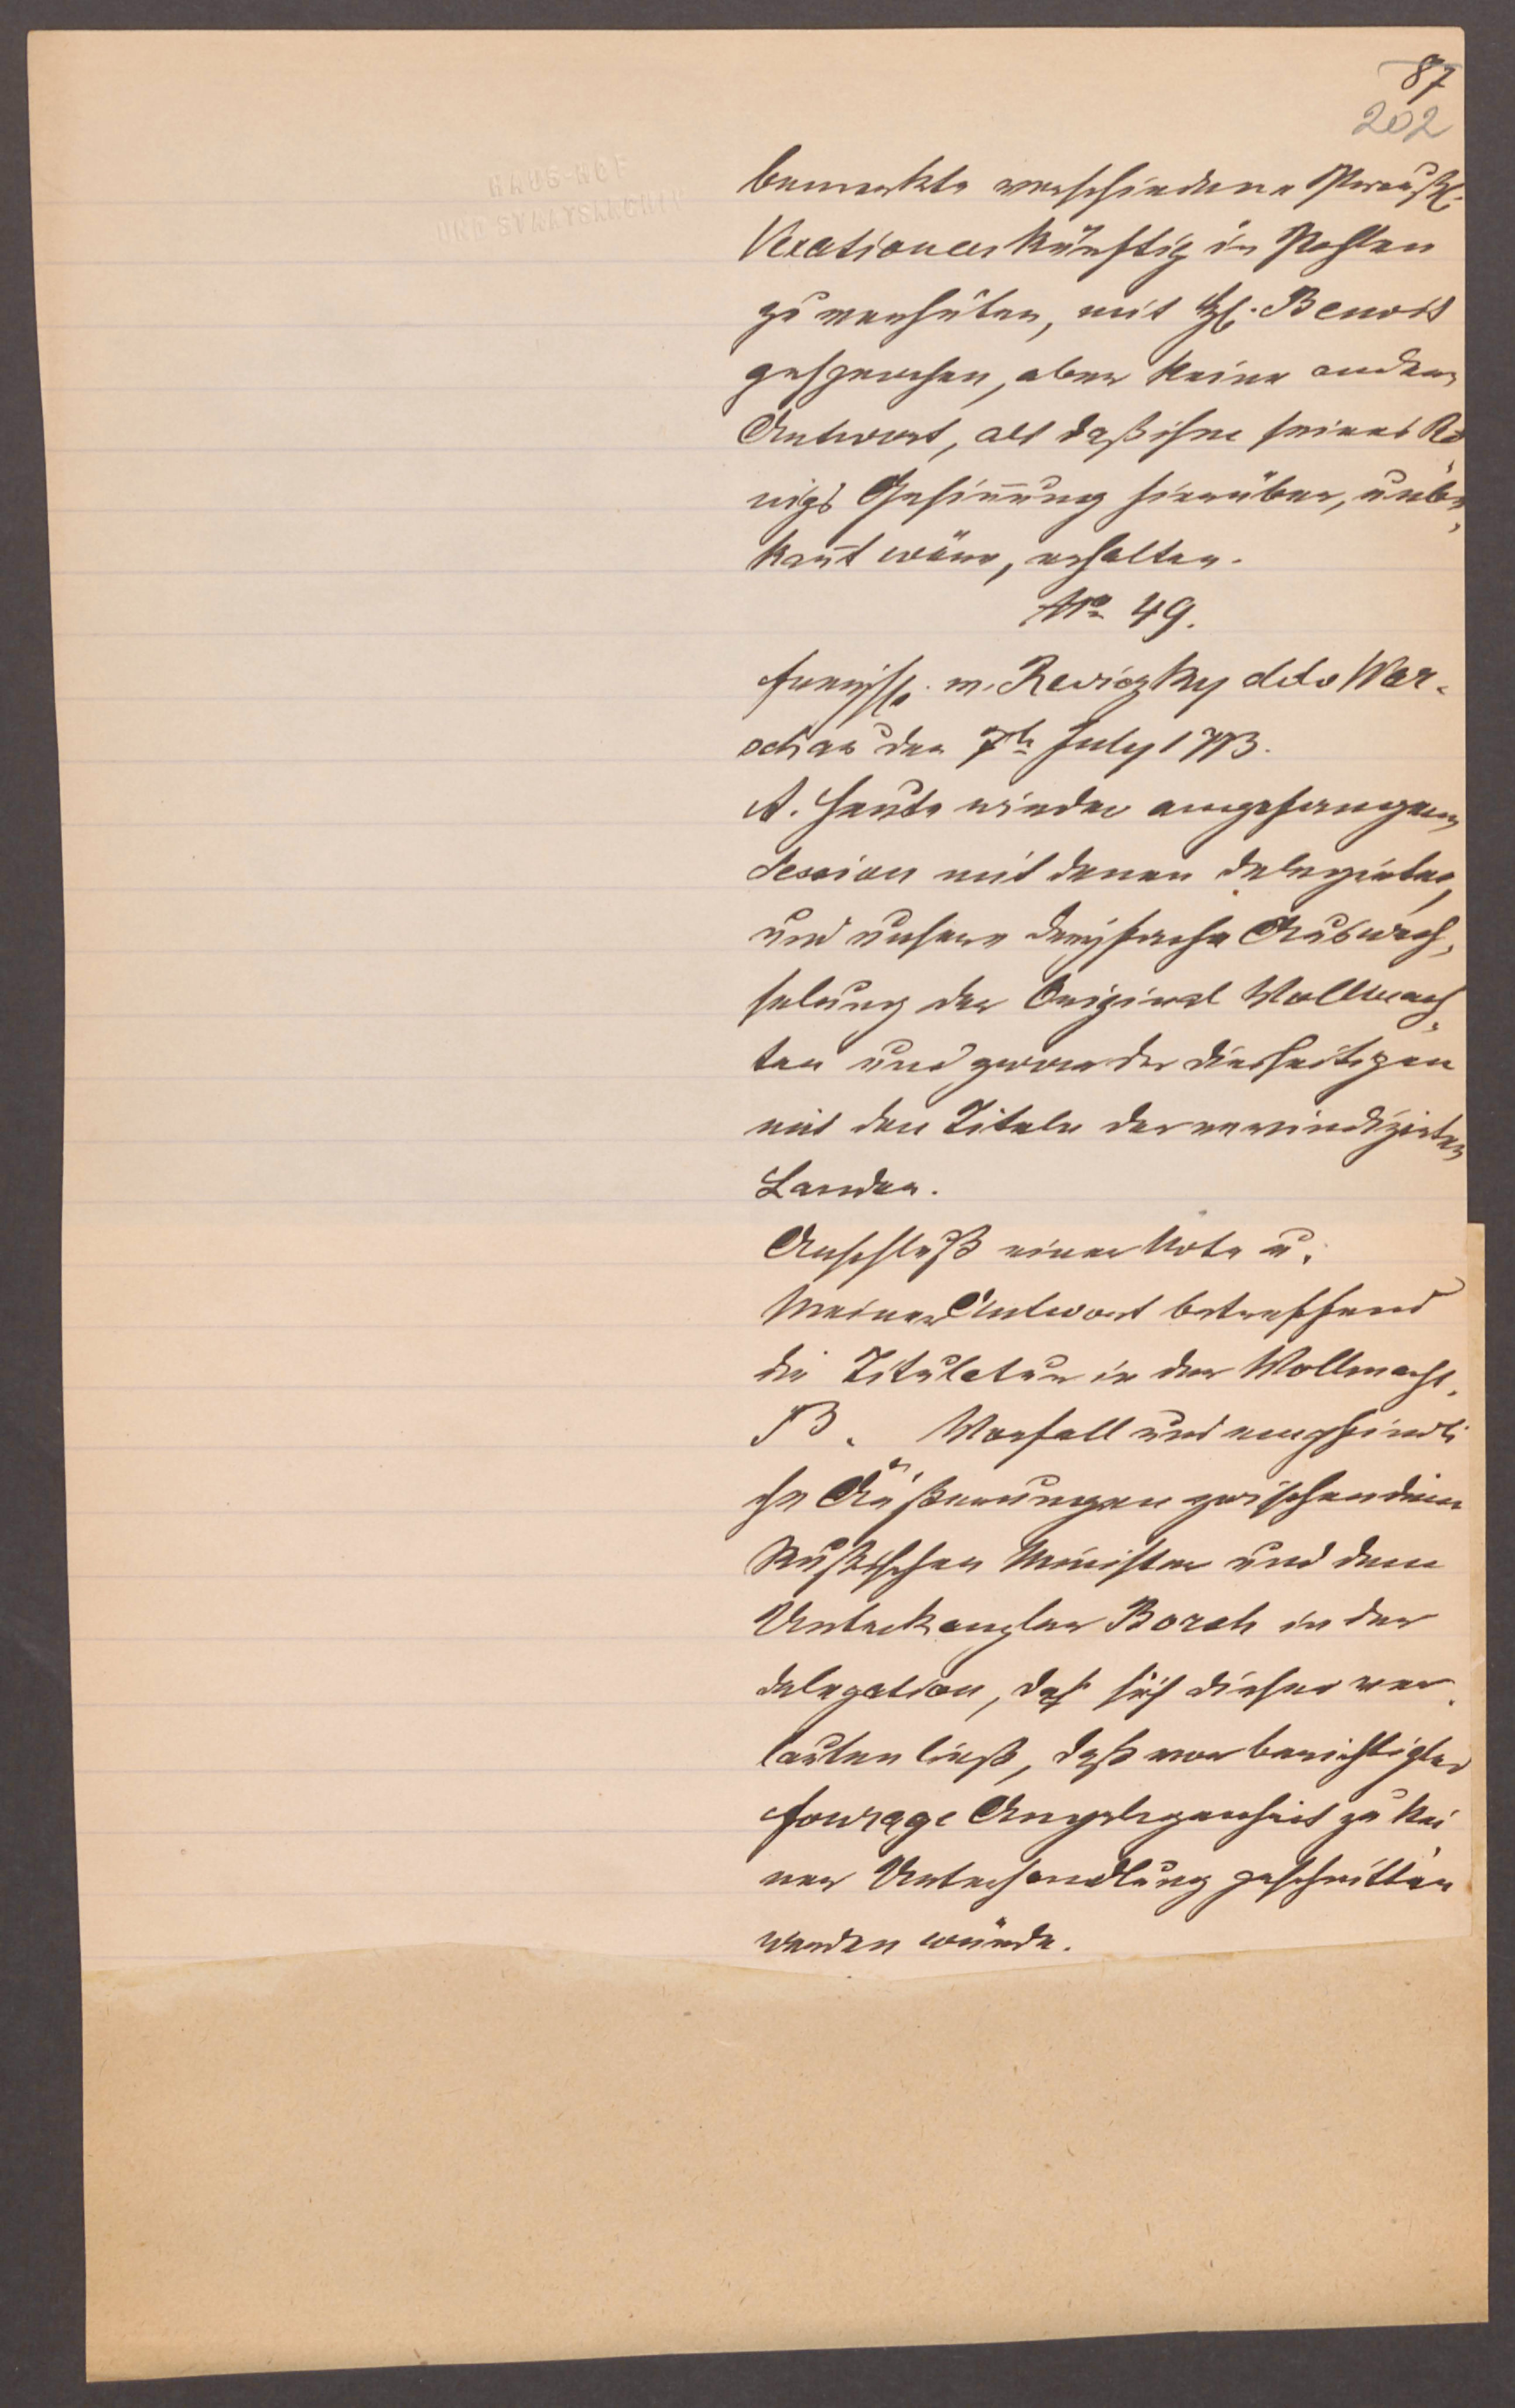 87
202
HAUS-HOF
UND STAATSARCHIV
bemerkte verschiedene Preuß.
Vexationen künftig in Pohlen
zu verhüten, mit H. Benoit
gesprochen, aber keine andere
Antwort, als daß ihm seines Kö,
nigs Gesinnung hierüber, unbe,
kannt wäre, erhalten.
No 49.
v. Reviczky ddo War-
schau den 7te July 1773.
A. Heute wieder angefangene
Session mit denen Delegirten,
und unsere dreyfache Auswech,
selung der Original Vollmach,
ten und zwar der diesseitigen
mit den Titeln der revindizirten
Landen.
Anschluß einer Note u.
Meiner Antwort betreffend
die Titulatur in der Vollmacht.
B. Vorfall und empfindli
che Äußerungen zwischen dem
Rußischen Minister und dem
Unterkanzler Borch in der
Delegation, daß sich dieser ver,
lauten ließ, daß vor berichtigter
Fourage Angelegenheit zu kei
ner Unterhandlung geschritten
werden würde.